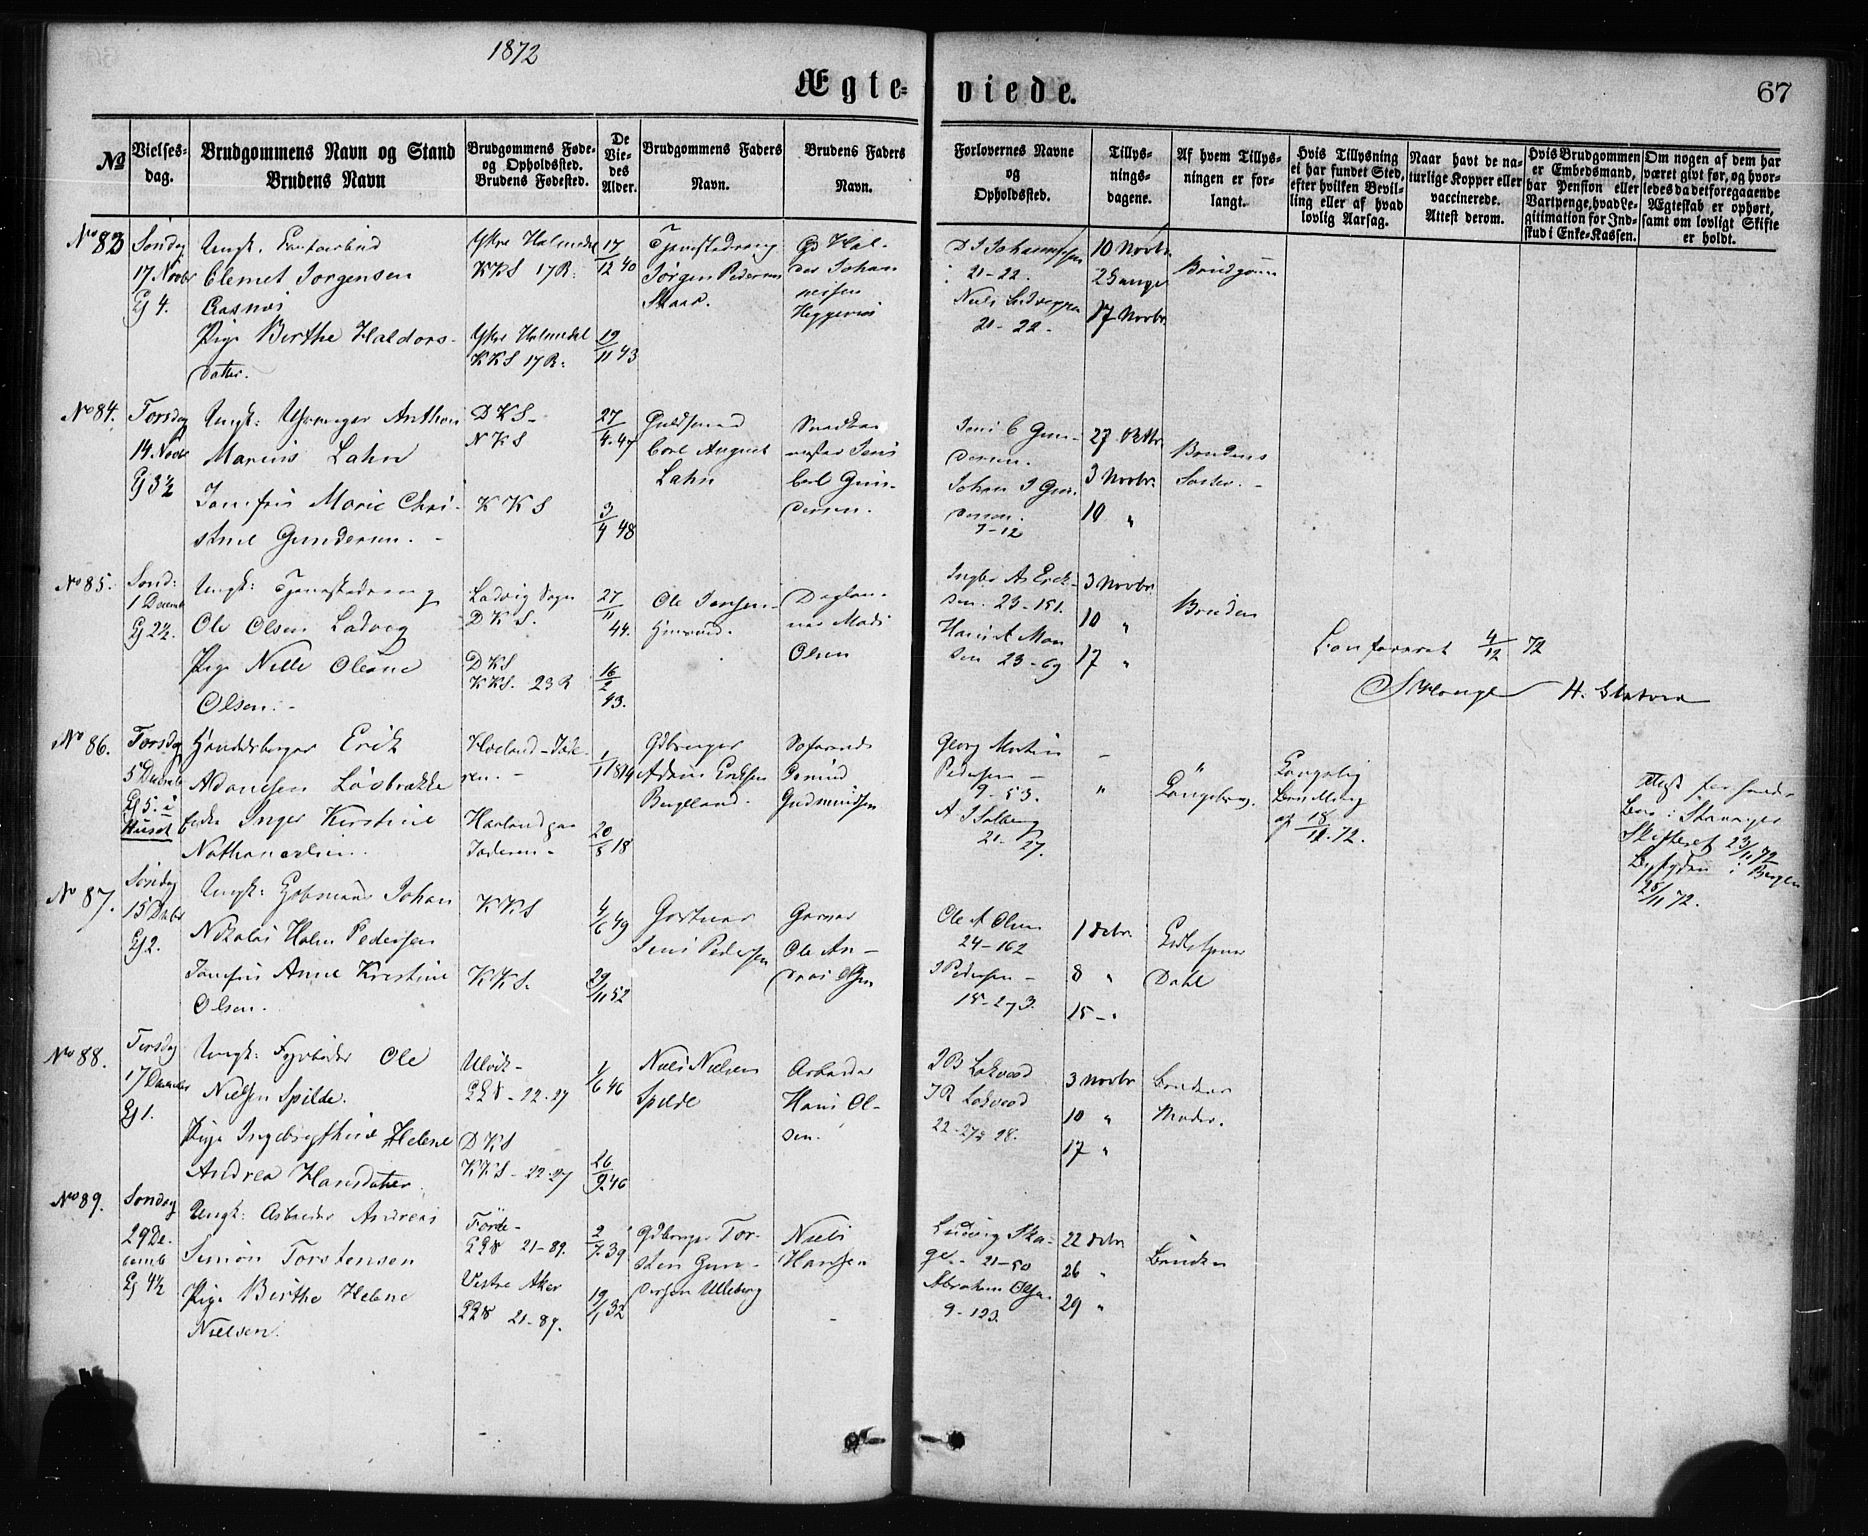 1872
Ægte=
viede.
67
№
Vielses-
dag.
Brudgommens Navn og Stand
Brudens Navn
Brudgommens Føde-
og Opholdssted.
Brudens Fødested.
De
Vie-
des
Alder.
Brudgommens Faders
Navn.
Brudens Faders
Navn.
Forlovernes Navne
og
Opholdssted.
Tillys-
nings-
dagene.
Af hvem Tillys-
ningen er for-
langt.
Hvis Tillysning
ei har fundet Sted,
efter hvilken Bevil-
ling eller af hvad
lovlig Aarsag.
Naar havt de na-
turlige Kopper eller
vaccinerede.
Attest derom.
Hvis Brudgommen
er Embedsmand,
har Pension eller
Vartpenge, hvad Le-
gitimation for Ind-
skud i Enke-Kassen.
Om nogen af dem har
været givt før, og hvor-
ledes da det foregaaende
Ægteskab er ophørt,
samt om lovligt Skifte
er holdt.
No 83
Søndag
17. Novbr
Kl 4.
Ungk.
Clemet Jørgensen
Pige Berthe Haldors-
datter.
Ytre Holmedal
KKS 17 R.
Ytre Holmedal
KKS 17 R.
17/12 40
19/11 43
Tjenestedreng
Jørgen Pedersen
Gd Hal-
dor Johan
nessen
D J Johannessen
21-22.
21-22-
10 Novbr.
2 Gange
17 Novbr.
Brudgom
No 84.
Torsdag
14. Novbr
Kl 3½
Ungk: Anthon
Marius Lahn
Jomfru Marie Chri-
stine Gundersen.
DKS-
NKS
KKS
27/4 47
3/9 48
Guldsmed
Carl August
Lahn
Jens
Carl Gun-
dersen.
Jens C Gun-
dersen.
Johan J Gun-
dersen.
7-12
27. Oktbr.
3 Novbr.
10 "
Brudens
No 85.
Sønd:
1 Decemb
Kl 2½.
Ungk: Tjenestedreng
Ole Olsen Ladvig
Pige Nille Oleane
Olsen.
Ladvig Sogn
DKS.
DKS
KKS. 23 R
27/11 44.
16/2 43.
Ole Jensen
Husmand.
Dagløn-
ner Mads
Olsen
23-151.
23-69
3 Novbr
10 "
17 "
Bruden
Confereret 4/12 72
No 86.
Torsdag
5 Decemb
Kl 5. i
Huset
Handelsborger Erik
Adamsen Løvbrække
Inger Kirstine
Nathanaelsen.
Jæderen
20/8 18
Gdbruger
Adam Eriksen
Bergland.
Gudmundsen
Georg Martin
Pedersen-
9-53.
A J Solberg
21-27.
"
Kongelig
Bevilling
af 18/11.72.
i Stavanger
Skifteret 23/11 72
Byfogden i Bergen
25/11 72.
No 87.
Søndag
15 Decbr
Kl 2.
Ungk: Johan
Nikolai Holm Pedersen
Jomfru Anne Kristine
Olsen.
KKS
KKS.
4/6 49
29/11 52
Jens Pedersen
Garver
Ole An-
dreas Olsen
Ole A Olsen
24-162
J Pedersen-
15-273.
1 Decbr.
8 "
15 - "
Dahl
No 88.
Tirsdag
17 December
Kl 1.
Ungk: Fyrbøder Ole
Nielsen Spilde.
Pige Ingebrigthine Helene
Andrea Hansdatter.
Ulvik-
22-27
DKS
KKS-22-27
1/6 46
26/9 46
Niels Nielsen
Spilde
Arbeider
Hans Ol-
sen.
22-27 & 28.
3 Novbr
10 "
17 "
Brudens
Moder.
No 89.
Søndag
29 De-
cemb
Kl 4½
Ungk: Arbeider Andreas
Simon Torstensen
Pige Berthe Helene
Nielsen.
Førde-
21-89.
Vestre Aker
21-89.
2/7 39
19/1 32
Gdbruger Tor-
sten Gun-
dersen Ulleberg
Niels
Hansen
Ludvig Ska-
ge.- 21-50
Abraham Olsen
9-123.
22 Decbr
26 "
29 "
Bruden